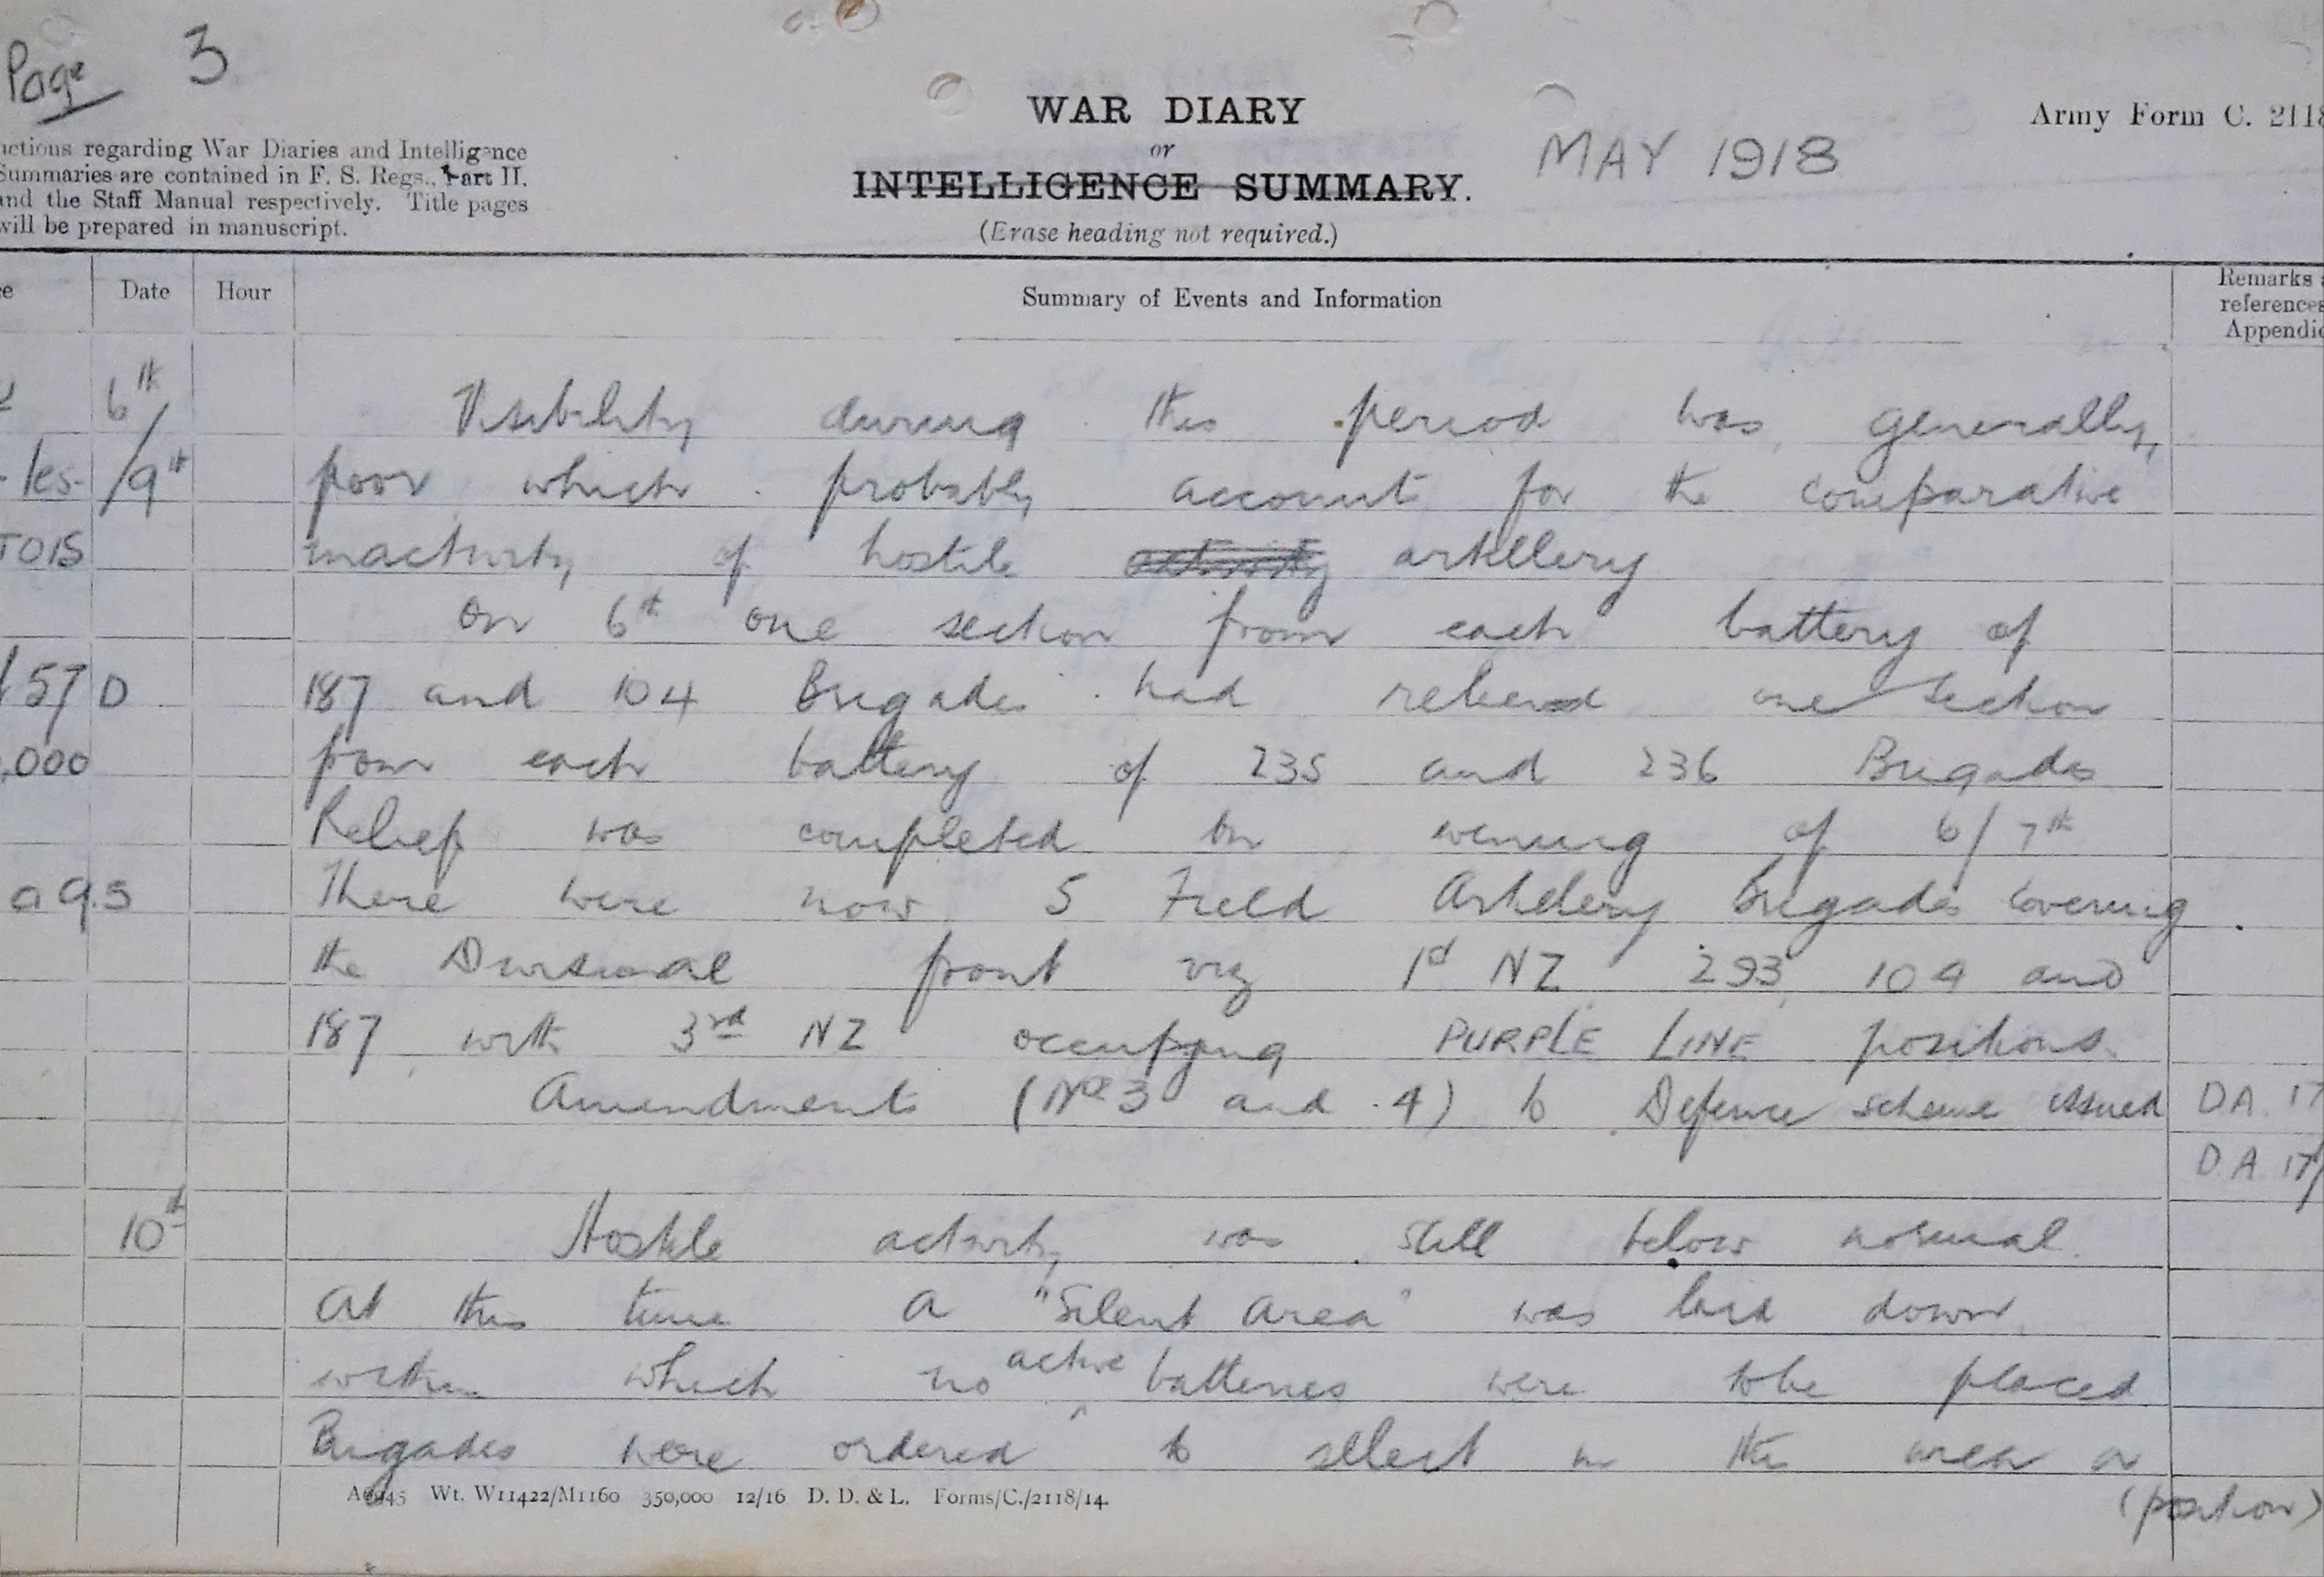 Page 3
WAR DIARY
or
INTELLIGENCE SUMMARY.
(Erase heading not required.)
MAY 1918
Army Form C. 2118
uctions regarding War Diaries and Intelligence
Summaries are contained in F. S. Regs., Part II.
and the Staff Manual respectively. Title pages
will be prepared in manuscript.
Date Hour Summary of Events and Information
Remarks
references
Appendic
6th Visibility during this period was generally
-les- /9th poor which probably accounts for the comparative
TOIS inactivity of hostile activity artillery
On 6th one section from each battery of
57 D 187 and 104 Brigades had relieved one section
,000 from each battery of 235 and 236 Brigades
Relief was completed on evening of 6/7th
a 9.5 There were now 5 Field Artillery Brigades covering
the Divisional front viz 1st NZ 293 104 and
187 with 3rd NZ occupying PURPLE LINE positions.
Amendments (Nos 3 and 4) to Defence scheme issued DA. 17
D.A. 17/
10th Hostile activity was still below normal.
At this time a "Silent Area" was laid down
within which no active batteries were to be placed
Brigades were ordered to select in this area a
(position)
A6945 Wt. W11422/M1160 350,000 12/16 D. D. & L. Forms/C./2118/14.